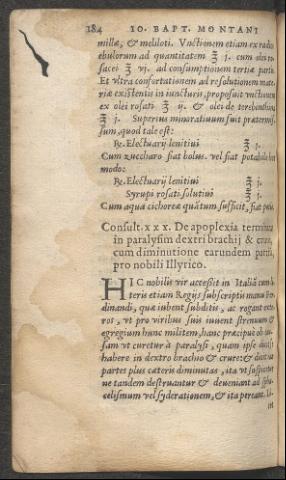 184 IO. BAPT. MONTANI
millæ, & meliloti. Vnctionem etiam ex radice
ebulorum ad quantitatem ℥ j. cum oleo ro-
sacei ℥ vj. ad consumptionem tertiæ partis.
Et vltra confortationem ad resolutionem mate-
riæ existentis in iuncturis, proposuit vnctionem
ex olei rosati ℥ ij. & olei de terebenthina
℥ j. Superius minoratiuum fuit prætermis-
sum, quod tale est:
℞. Electuarij lenitiui ℥ j.
Cum zuccharo fiat bolus. vel fiat potabile hoc
modo:
℞. Electuarij lenitiui ℥ j.
Syrupi rosati solutiui ℥ j.
Cum aqua cichoreæ quātum sufficit, fiat potio.
Consult. xxx. De apoplexia terminata
in paralysim dextri brachij & cruris,
cum diminutione earundem partium,
pro nobili Illyrico.
HIC nobilis vir accessit in Italiā cum li-
teris etiam Regijs subscriptis manu Fer-
dinandi, quæ iubent subditis, ac rogant exte-
ros, vt pro viribus suis iuuent strenuum &
egregium hunc militem, hanc præcipuè ob cau-
sam vt curetur à paralysi, quam ipse dicit se
habere in dextro brachio & crure: & dicit eas
partes plus cæteris diminutas, ita vt suspicetur
ne tandem destruantur & deueniant ad spha-
celismum vel syderationem, & ita pereant.